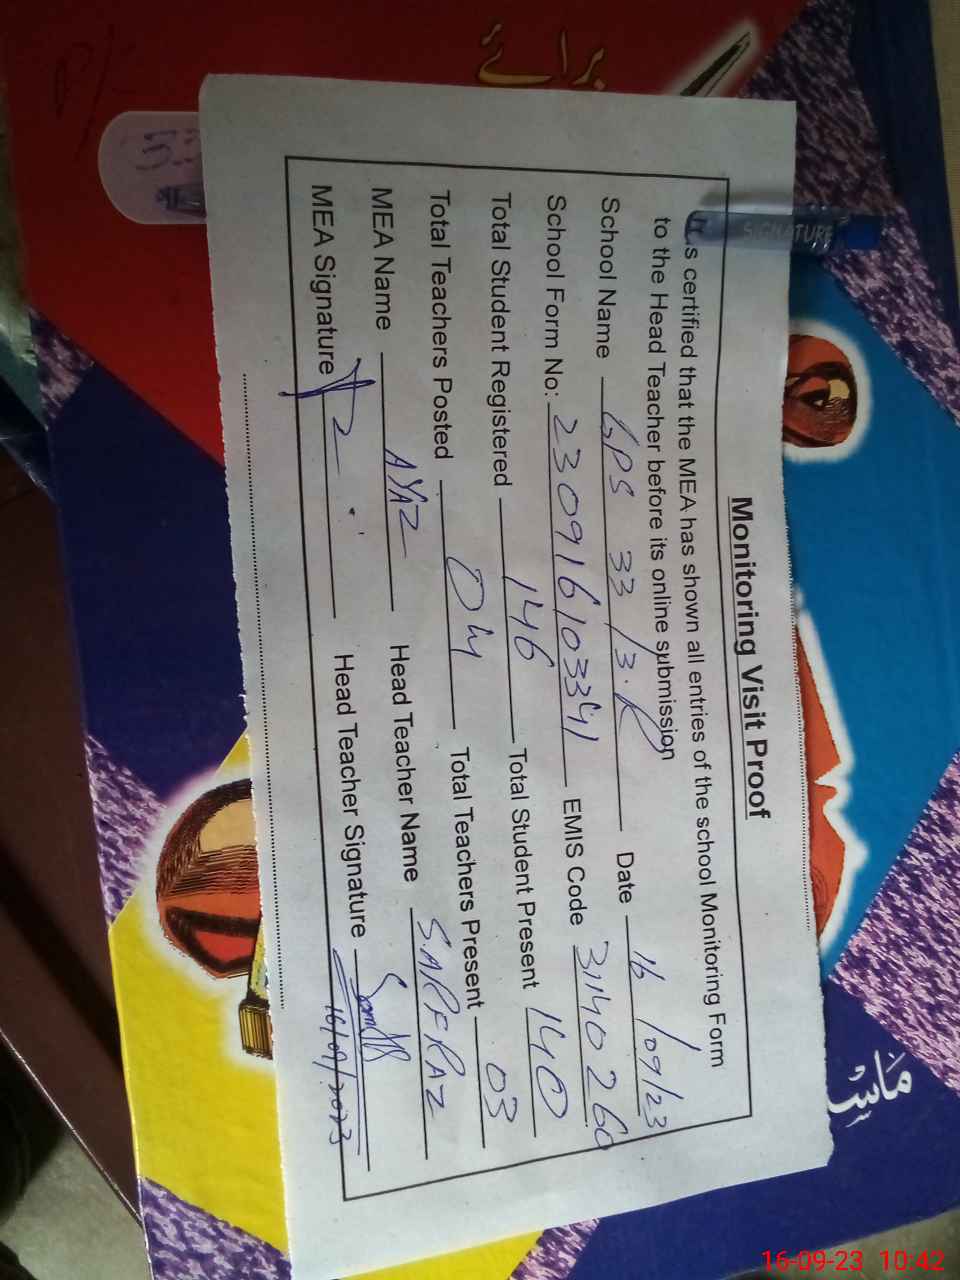 برائے
SIGNATURE
Monitoring Visit Proof
is certified that the MEA has shown all entries of the school Monitoring Form
to the Head Teacher before its online submission
School Name GPS 33/3.R Date 16/09/23
School Form No: 230916103341 EMIS Code 31140260
Total Student Registered 146 Total Student Present 140
Total Teachers Posted 04 Total Teachers Present 03
MEA Name AYAZ Head Teacher Name SARFRAZ
MEA Signature Head Teacher Signature
16/09/2023
16-09-23 10:42